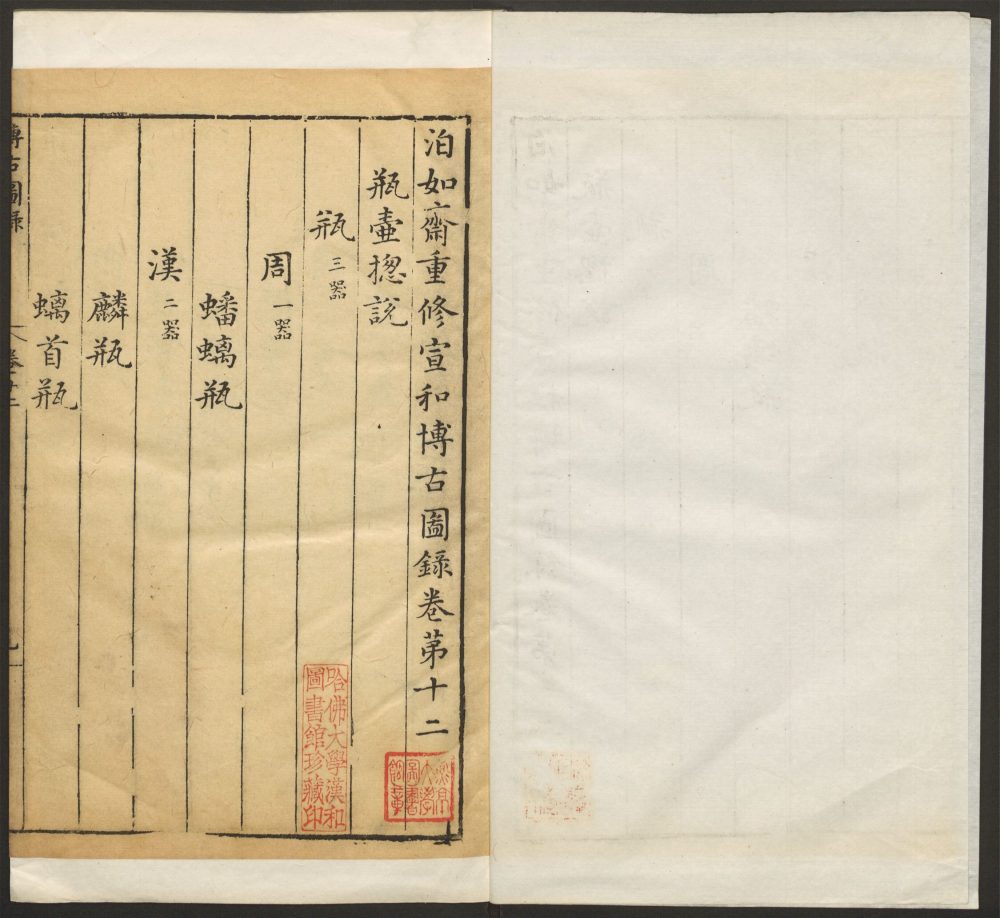 泊如齋重修宣和博古圖錄卷第十二
瓶壺揔說
瓶 三器
周 一器
蟠螭瓶
漢 二器
麟瓶
螭首瓶
博古圖錄
哈佛大學漢和
圖書館珍藏印